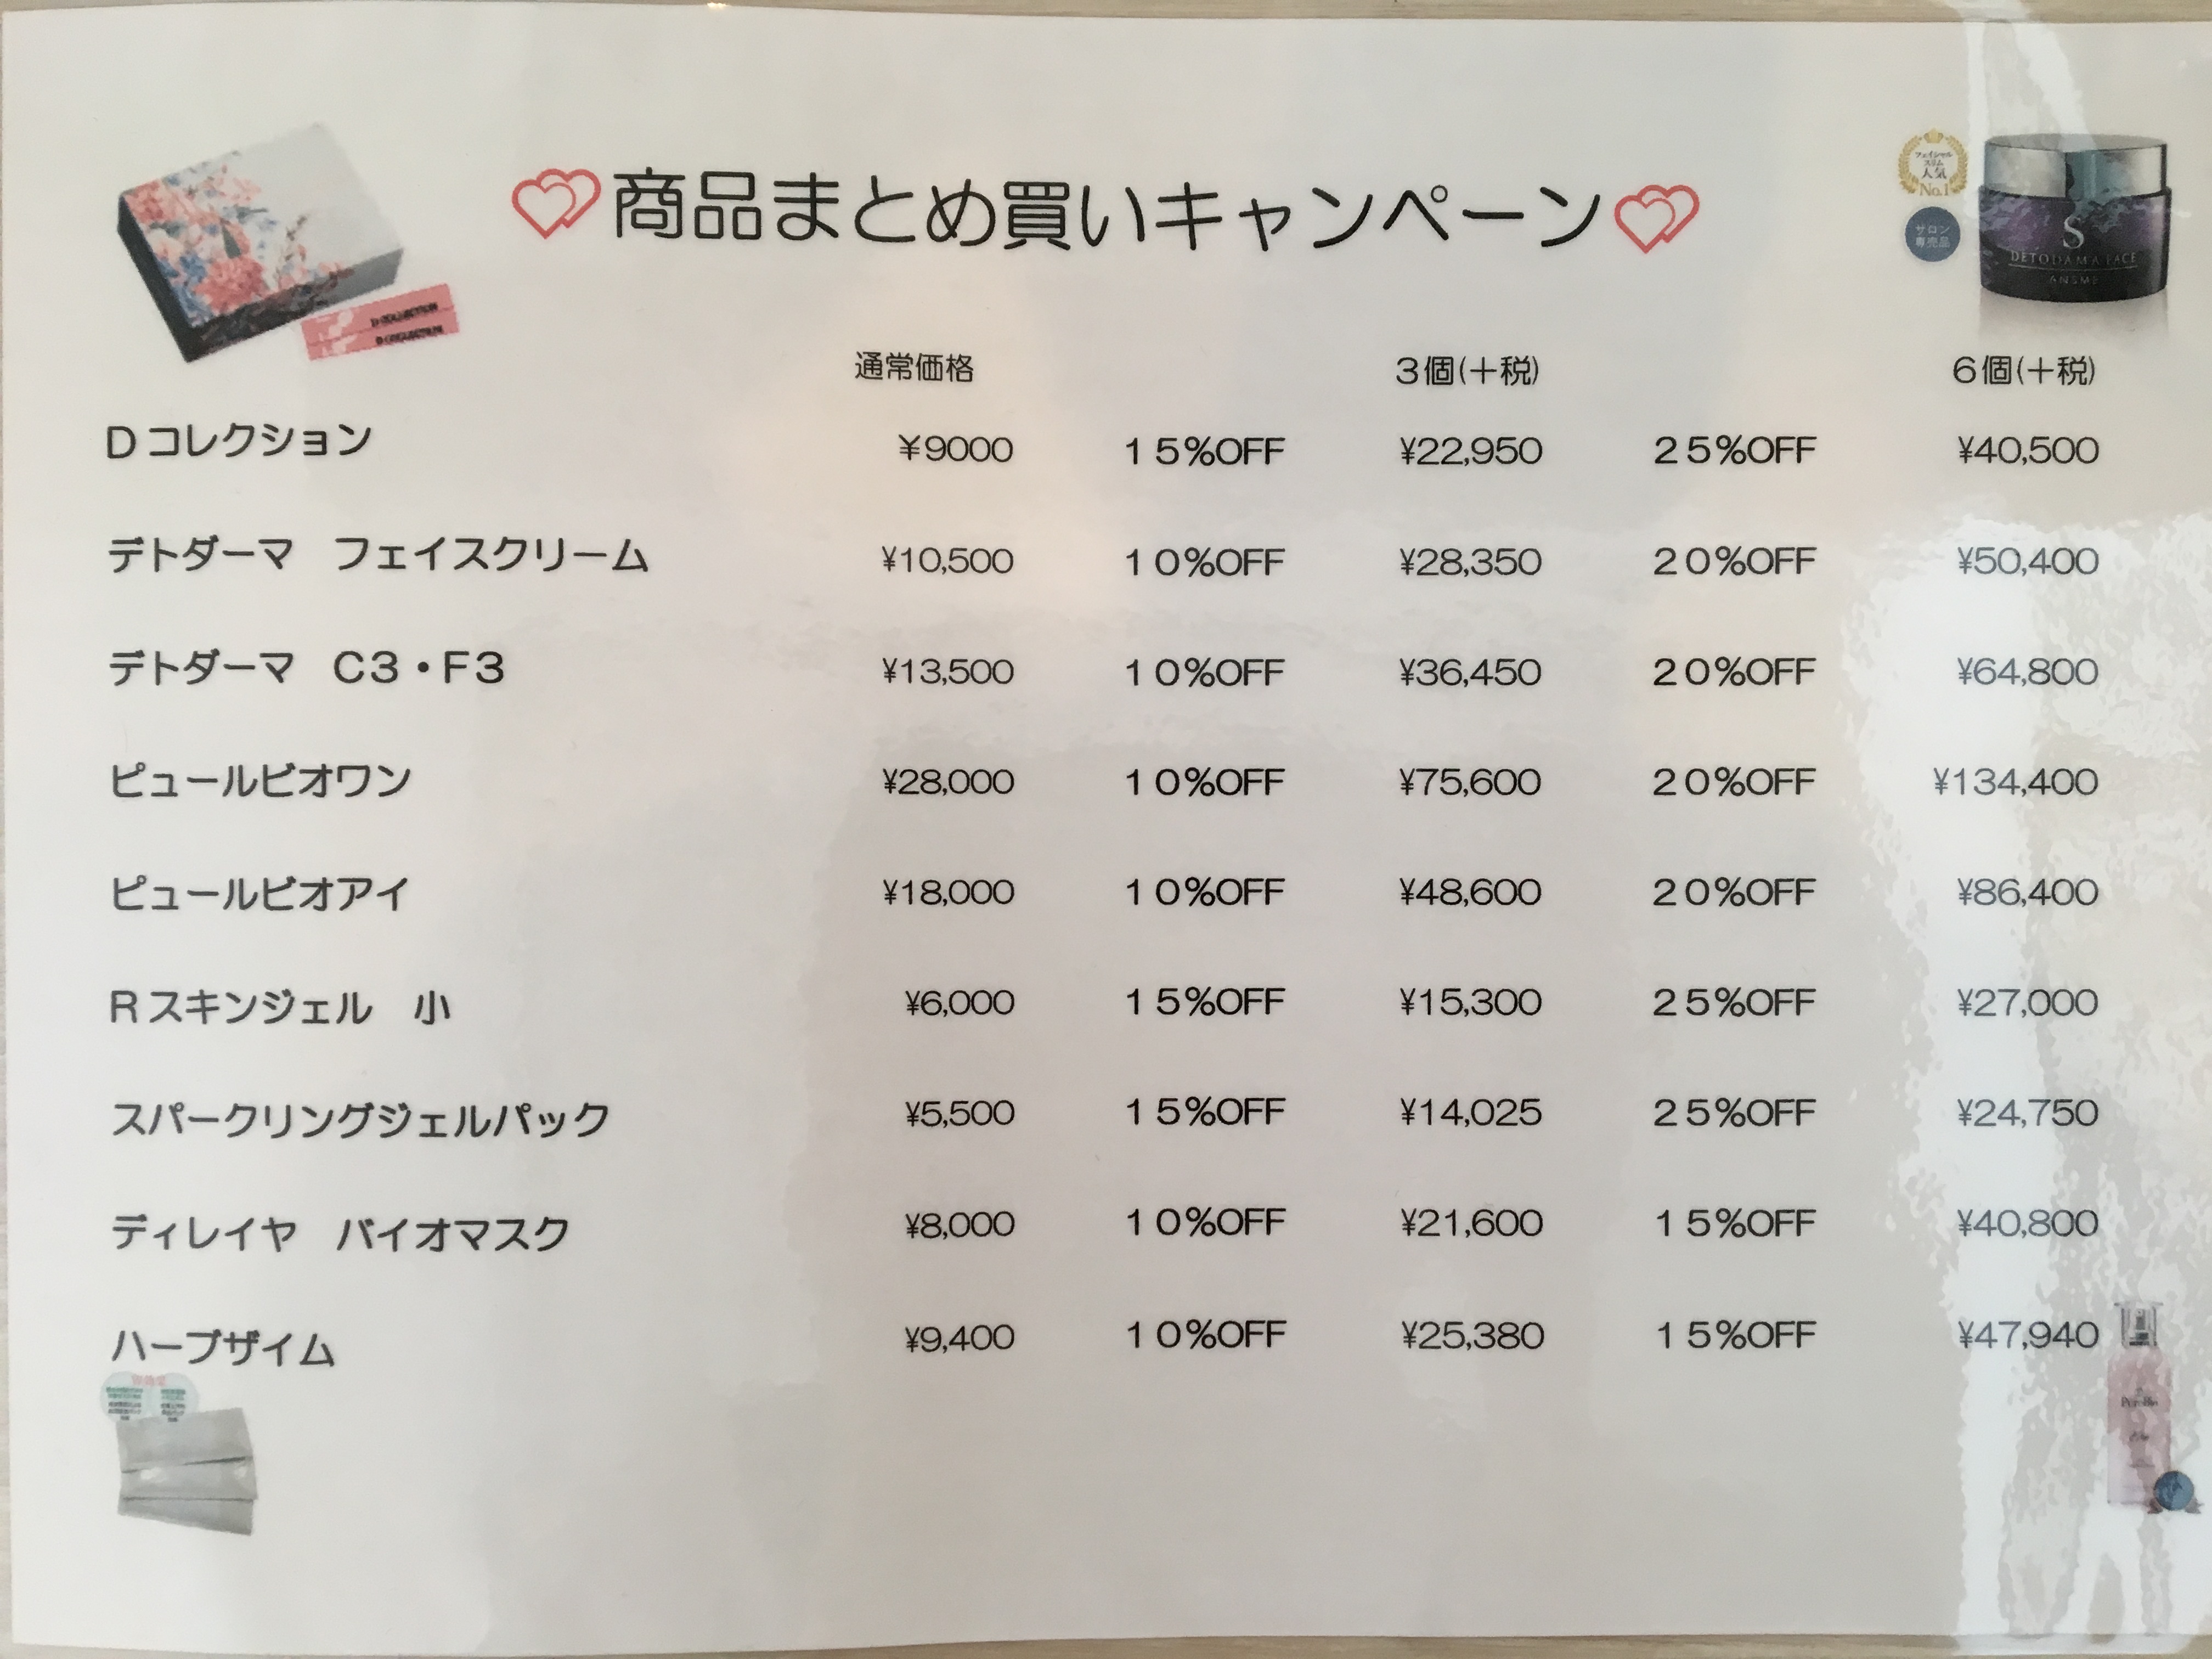 商品まとめ買いキャンペーン
フェイシャル
スリム
人気
No.1
サロン
専売品
S
DETODAMA FACE
D COLLECTION
D COLLECTION
通常価格 3個(+税) 6個(+税)
Dコレクション ¥9000 15%OFF ¥22,950 25%OFF ¥40,500
デトダーマ フェイスクリーム ¥10,500 10%OFF ¥28,350 20%OFF ¥50,400
デトダーマ C3・F3 ¥13,500 10%OFF ¥36,450 20%OFF ¥64,800
ピュールビオワン ¥28,000 10%OFF ¥75,600 20%OFF ¥134,400
ピュールビオアイ ¥18,000 10%OFF ¥48,600 20%OFF ¥86,400
Rスキンジェル 小 ¥6,000 15%OFF ¥15,300 25%OFF ¥27,000
スパークリングジェルパック ¥5,500 15%OFF ¥14,025 25%OFF ¥24,750
ディレイヤ バイオマスク ¥8,000 10%OFF ¥21,600 15%OFF ¥40,800
ハーブザイム ¥9,400 10%OFF ¥25,380 15%OFF ¥47,940